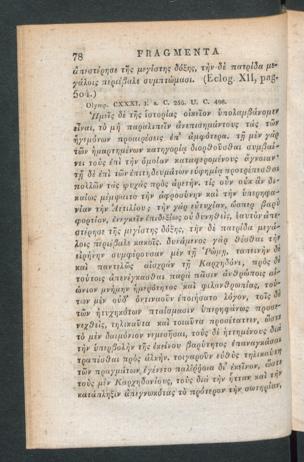 78 FRAGMENTA
ἀπεστέρησε τῆς μεγίστης δόξης, τὴν δὲ πατρίδα με-
γάλοις περιέβαλε συμπτώμασι. (Eclog. XII, pag.
504.)
Olymp. CXXXI. a. C. 256. U. C. 498.
Ἡμεῖς δὲ τῆς ἱστορίας οἰκεῖον ὑπολαμβάνομεν
εἶναι, τὸ μὴ παραλιπεῖν ἀνεπισημάντους τὰς τῶν
ἡγεμόνων προαιρέσεις ἐπ' ἀμφότερα. τῇ μὲν γὰρ
τῶν ἡμαρτημένων κατηγορίᾳ διορθοῦσθαι συμβαί-
νει τοὺς ἐπὶ τὴν ὁμοίαν καταφερομένους ἄγνοιαν·
τῇ δὲ ἐπὶ τῶν ἐπιτηδευμάτων εὐφημίᾳ προτρέπεσθαι
πολλῶν τὰς ψυχὰς πρὸς ἀρετήν. τίς οὖν οὐκ ἂν δι-
καίως μέμψαιτο τὴν ἀφροσύνην καὶ τὴν ὑπερηφα-
νίαν τὴν Ἀτιλίου; τὴν γὰρ εὐτυχίαν, ὥσπερ βαρὺ
φορτίον, ἐνεγκεῖν ἐπιδεξίως οὐ δυνηθεὶς, ἑαυτὸν ἀπε-
στέρησε τῆς μεγίστης δόξης, τὴν δὲ πατρίδα μεγά-
λοις περιέβαλε κακοῖς. δυνάμενος γὰρ θέσθαι τὴν
εἰρήνην συμφέρουσαν μὲν τῇ Ῥώμῃ, ταπεινὴν δὲ
καὶ παντελῶς αἰσχρὰν τῇ Καρχηδόνι, πρὸς δὲ
τούτοις ἀπενέγκασθαι παρὰ πᾶσιν ἀνθρώποις αἰ-
ώνιον μνήμην ἡμερότητος καὶ φιλανθρωπίας, τού-
των μὲν οὐδ' ὁντιναοῦν ἐποιήσατο λόγον, τοῖς δὲ
τῶν ἠτυχηκότων πταίσμασιν ὑπερηφάνως προσε-
νεχθεὶς, τηλικαῦτα καὶ τοιαῦτα προσέταττεν, ὥστε
τὸ μὲν δαιμόνιον νεμεσῆσαι, τοὺς δὲ ἡττημένους διὰ
τὴν ὑπερβολὴν τῆς ἐκείνου βαρύτητος ἐπαναγκάσαι
τραπέσθαι πρὸς ἀλκήν. τοιγαροῦν εὐθὺς τηλικαύτη
τῶν πραγμάτων ἐγένετο παλίῤῥοια δι' ἐκεῖνον, ὥστε
τοὺς μὲν Καρχηδονίους, τοὺς διὰ τὴν ἧτταν καὶ τὴν
κατάπληξιν ἀπεγνωκότας τὸ πρότερον τὴν σωτηρίαν,